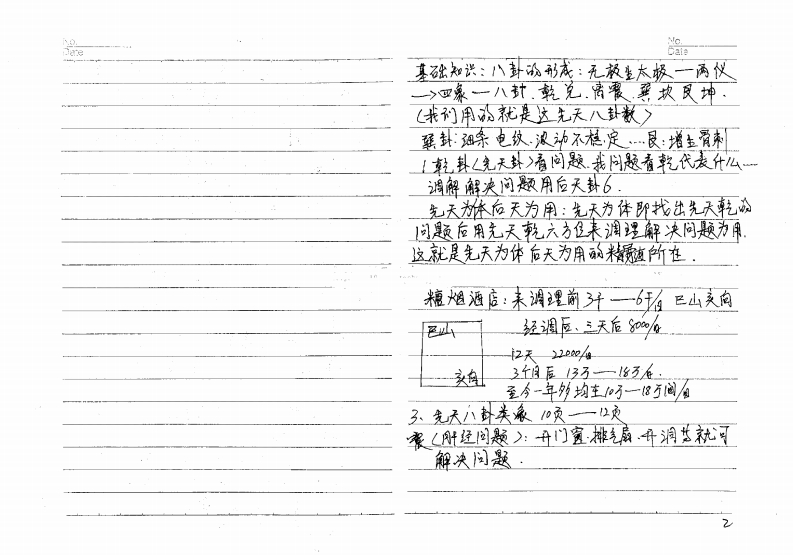 No.
Date
No.
Date
基础知识：八卦的形成：无极生太极一两仪
→四象一八卦.乾兑.离震.巽坎艮坤.
(我们用的就是这先天八卦数)
巽卦:细条电纹.波动不稳.定....艮:增生骨刺
1乾卦(先天卦)看问题.找问题看乾代表什么...
调解解决问题用后天卦6.
先天为体后天为用：先天为体即找出先天乾的
问题后用先天乾六方位来调理解决问题为用.
这就是先天为体后天为用的精髓所在.
糖烟酒店：来调理前3千——6千/月 巳山亥向
巳山
亥向
经调后、三天后8000/月
12天 22000/月
3个月后 13万——18万/月.
至今一年多均在10万—18万间/月
3、先天八卦类象 10页——12页
震(肝经问题)：开门窗.排气扇.开洞等就可
解决问题.
2